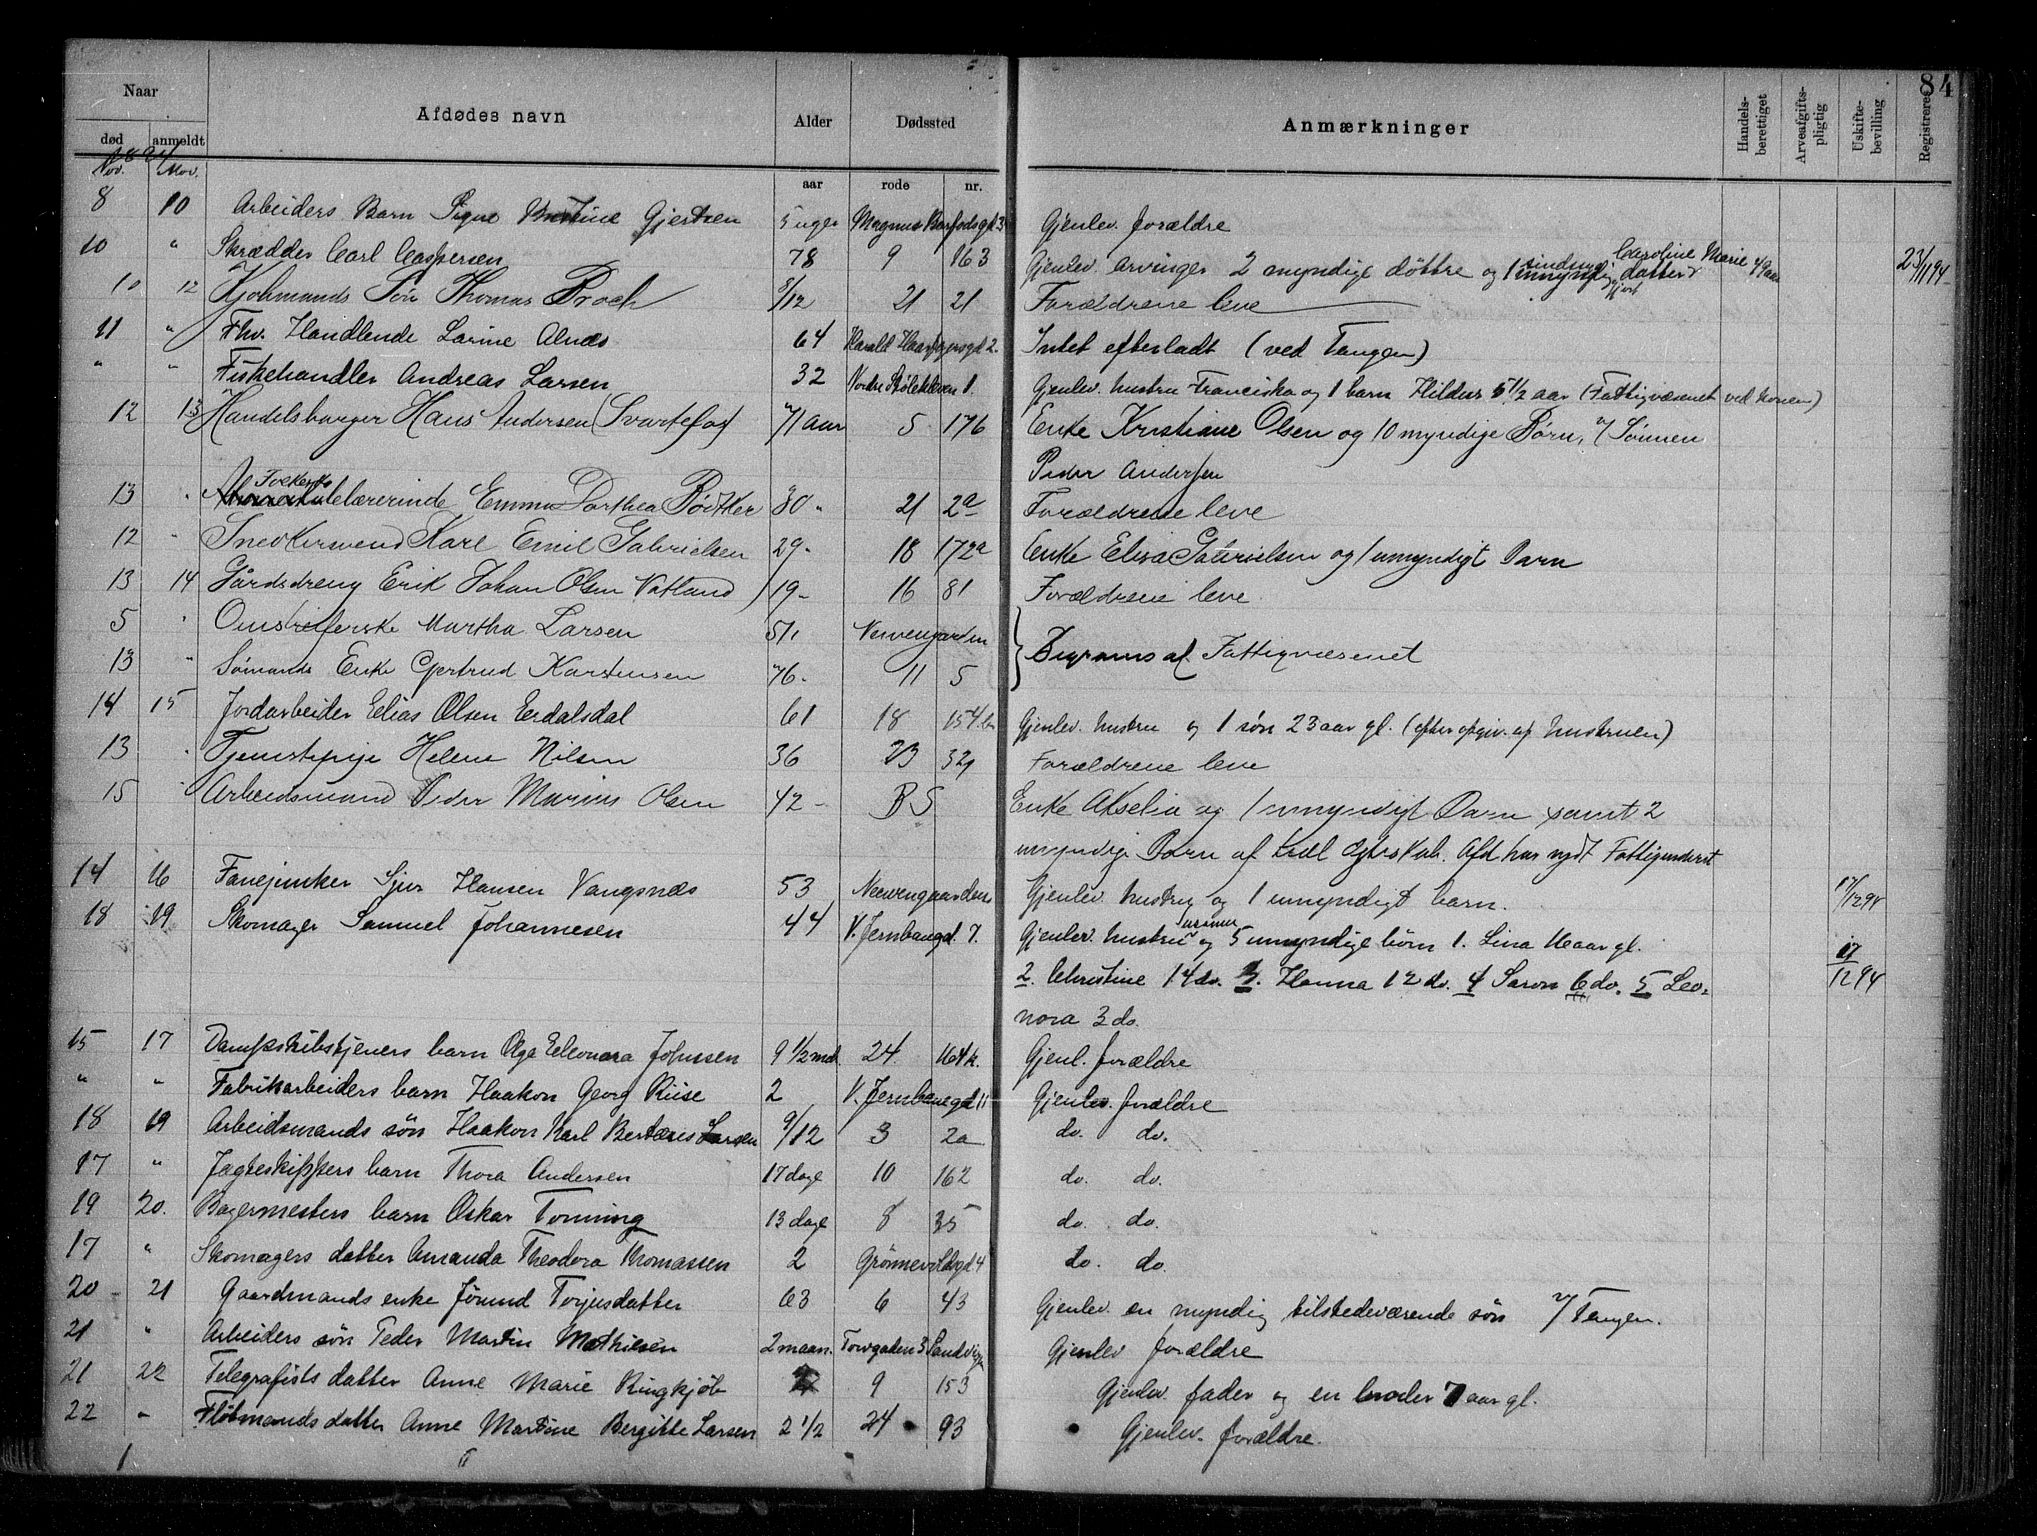 84
Naar
død anmeldt
Afdødes navn
Alder
aar
Dødssted
rode nr.
Anmærkninger
Handels-berettiget
Arveafgifts-pligtig
Uskifte-bevilling
Registreret
1894
Nov. Nov.
8 10 Arbeiders Barn Signe Gjertsen 5 uger Magnus Barfodsgd. 3 Gjenlev. forældre
10 " Skrædder Carl Caspersen 78 9 163 Gjenlev. arvinger 2 myndige døttre og 1 datter Caroline Marie 49 aar 23/11 94
10 12 Kjøbmands Søn Thomas Broch 5/12 21 21 Forældrene leve
11 " Fhv. Handlende Larine Alnæs 64 Harald Haarfagersgd 2. Intet efterladt (ved Tangen)
" " Fiskehandler Andreas Larsen 32 Nordre Skoleveien 1. Gjenlev. hustru Franciska og 1 barn Hildur 6 1/2 aar (Fattigvæsenet ved konen)
12 13 Handelsborger Hans Andersen (Svartefos) 71 aar 5 176 Enke Kristiane Olsen og 10 myndige Børn, v/ Sønnen
Peder Andersen
13 " lærerinde Emma Dorthea Bødtker 30 " 21 2a Forældrene leve
12 " Snedkersvend Karl Emil Gabrielsen 29 - 18 172a Enke Elisa Gabrielsen og 1 umyndigt Barn
13 14 Gårdsdreng Erik Johan Olsen Vatland 19 - 16 81 Forældrene leve.
5 " Martha Larsen 51, Nervengaarden
Begraves af Fattigvæsenet
13 " Sømands Enke Gjertrud Karstensen 76 - 11 5
14 15 Jordarbeider Elias Olsen Erdalsdal 61 18 154 b Gjenlev. hustru og 1 søn 23 aar gl. (efter opgiv. af hustruen)
13 " Tjenestepige Helene Nilsen 36 23 329 Forældrene leve
15 " Arbeidsmand Peder Marius Olsen 42 - B S Enke Akselia og 1 umyndigt Barn samt 2
umyndige Børn af tidl. Ægteskab. Afd har nydt Fattigunderst
14 16 Fanejunker Sjur Hansen Vangsnæs 53 Nervengaarden Gjenlev. hustru og 1 umyndigt barn. 17/12 94
18 19 Skomager Samuel Johannesen 44 V. Jernbanegd. 7. Gjenlev. hustru og 5 umyndige børn 1. Lina 16 aar gl.
2. Christine 14 do. 3. Hanna 12 do. 4 Saron 6 do. 5 Leo- 17/12 94
nora 3 do.
15 17 Dampskibstjeners barn Olga Eleonora Johnsen 9 1/2 md. 24 164 k. Gjenl. forældre
" " Fabrikarbeiders barn Haakon Georg Riise 2 V. Jernbanegd 11 Gjenlev. forældre
18 19 Arbeidsmands søn Haakon Karl Bertæus Larsen 9/12 3 2a do. do.
17 " Jagteskippers barn Thora Andersen 17 dage 10 162 do. do.
19 20. Bagermesters barn Oskar Tonning 13 dage 8 35 do. do.
17 " Skomagers datter Amanda Theodora Thomassen 2 Grønnevoldsgd 4 do. do.
20 21 Gaardmands enke Jørund Torjusdatter 63 6 43 Gjenlev. en myndig tilstedeværende søn v/ Tangen.
21 " Arbeiders søn Peder Martin Mathiesen 2 maan. Torvgaden 3 Sandvigen Gjenlev forældre
21 22 Telegrafists datter Anne Marie Ringkjøb 9 153 Gjenlev. fader og en broder 7 aar gl.
22 " Fløtmands datter Anne Martine Bergitte Larsen 2 1/2 24 93 Gjenlev. forældre.